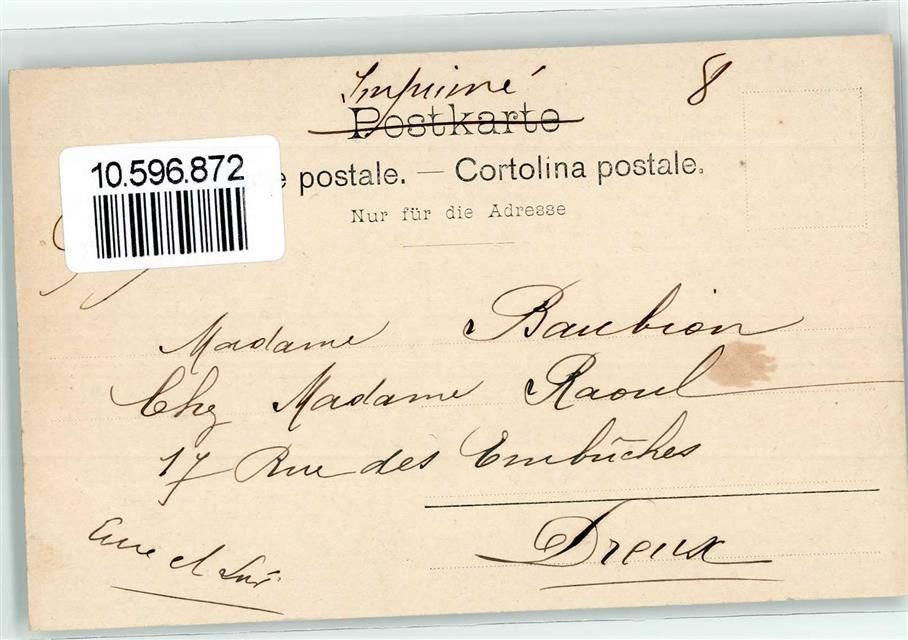 Imprimé 8
Postkarte
10.596.872
e postale. — Cortolina postale.
Nur für die Adresse
Madame Baubion
Chez Madame Raoul
17 Rue des Embûches
Dreux
Eure et Loir